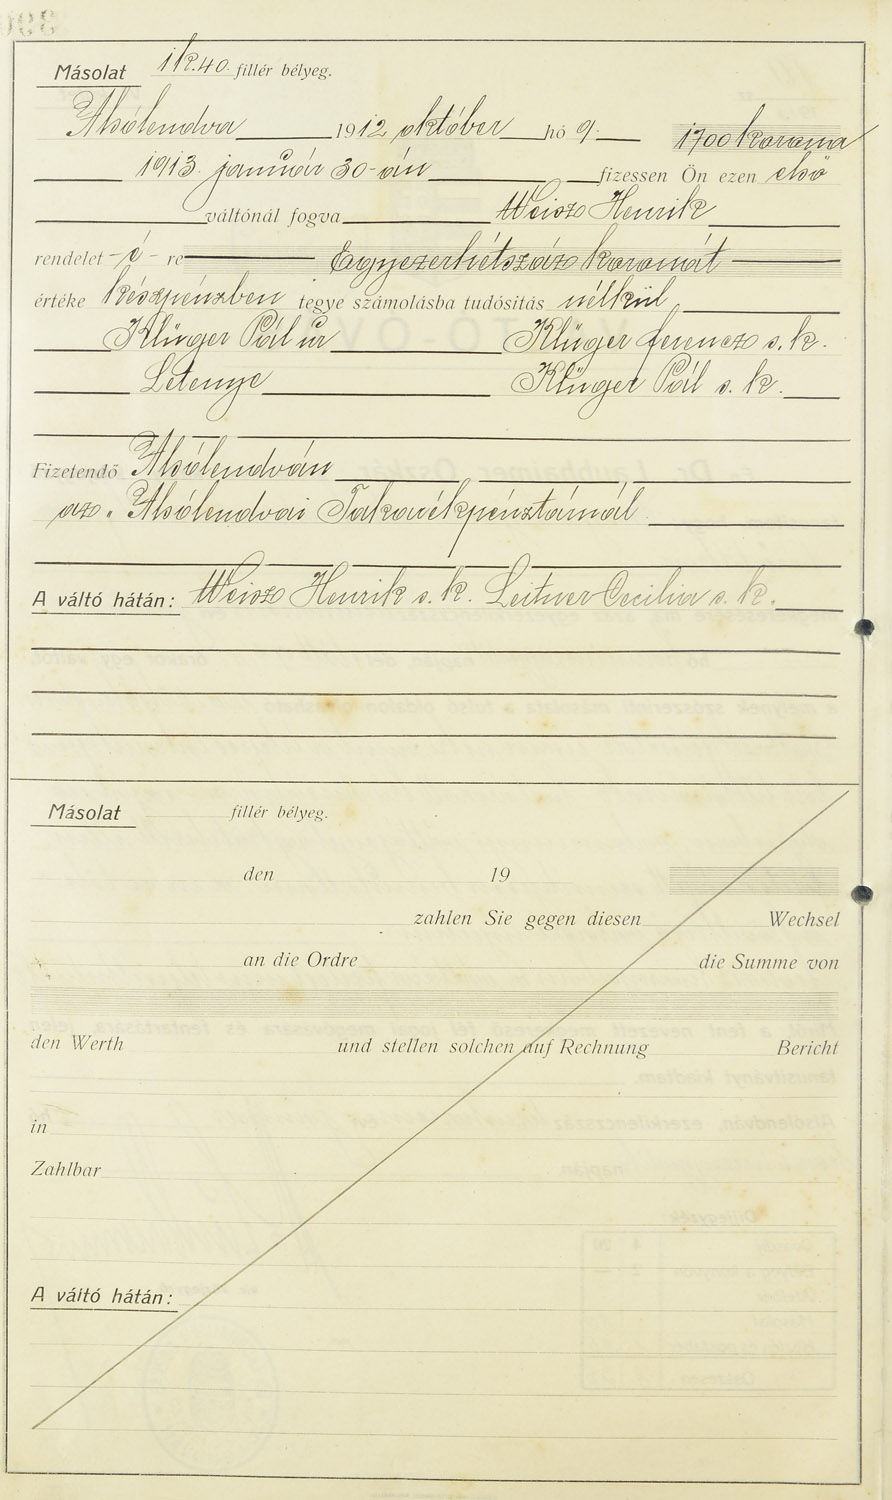 Másolat 1 k. 40. fillér bélyeg.
Alsólendva 1912 október hó 9. 1700 korona
1913. január 30-án fizessen Ön ezen első
váltónál fogva Weisz Henrik
rendelet -é- re Egyezerhétszáz koronát
értéke készpénzben tegye számolásba tudósítás nélkül
Klüger Pál úr Klüger Ferencz s. k.
Letenye Klüger Pál s. k.
Fizetendő Alsólendván
az „Alsólendvai Takarékpénztárnál
A váltó hátán: Weisz Henrik s. k. Leitner Cecilia s. k.
Másolat fillér bélyeg.
den 19
zahlen Sie gegen diesen Wechsel
an die Ordre die Summe von
den Werth und stellen solchen auf Rechnung Bericht
in
Zahlbar
A váltó hátán: